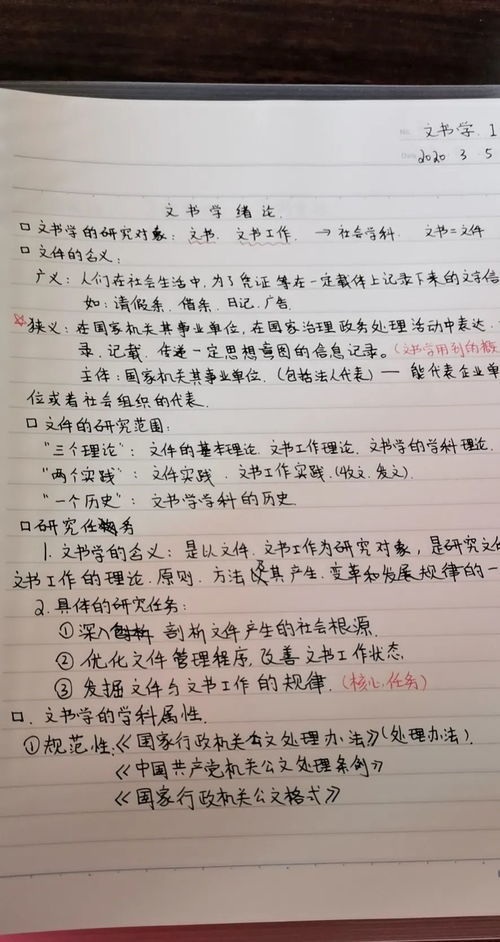 No. 文书学. 1
Date 2020 3 5
文书学绪论.
□ 文书学的研究对象: 文书. 文书工作. → 社会学科. 文书=文件
□ 文件的含义:
广义: 人们在社会生活中,为了凭证等在一定载体上记录下来的文字信
如: 请假条. 借条. 日记. 广告.
☆狭义: 在国家机关其事业单位, 在国家治理政务处理活动中表达.
录. 记载. 传递一定思想意图的信息记录。(文书学用到的概
主体: 国家机关其事业单位. (包括法人代表) — 能代表企业单
位或者社会组织的代表.
□ 文件的研究范围:
"三个理论": 文件的基本理论. 文书工作理论. 文书学的学科理论.
"两个实践": 文件实践. 文书工作实践.(收文.发文).
"一个历史": 文书学学科的历史.
□研究任务
1. 文书学的含义: 是以文件. 文书工作为研究对象, 是研究文
文书工作的理论. 原则. 方法及其产生. 变革和发展规律的一
2. 具体的研究任务:
① 深入剖析文件产生的社会根源.
② 优化文件管理程序. 改善文书工作状态.
③ 发掘文件与文书工作的规律. (核心任务)
□. 文书学的学科属性.
①规范性:《国家行政机关公文处理办法》(处理办法).
《中国共产党机关公文处理条例》
《国家行政机关公文格式》